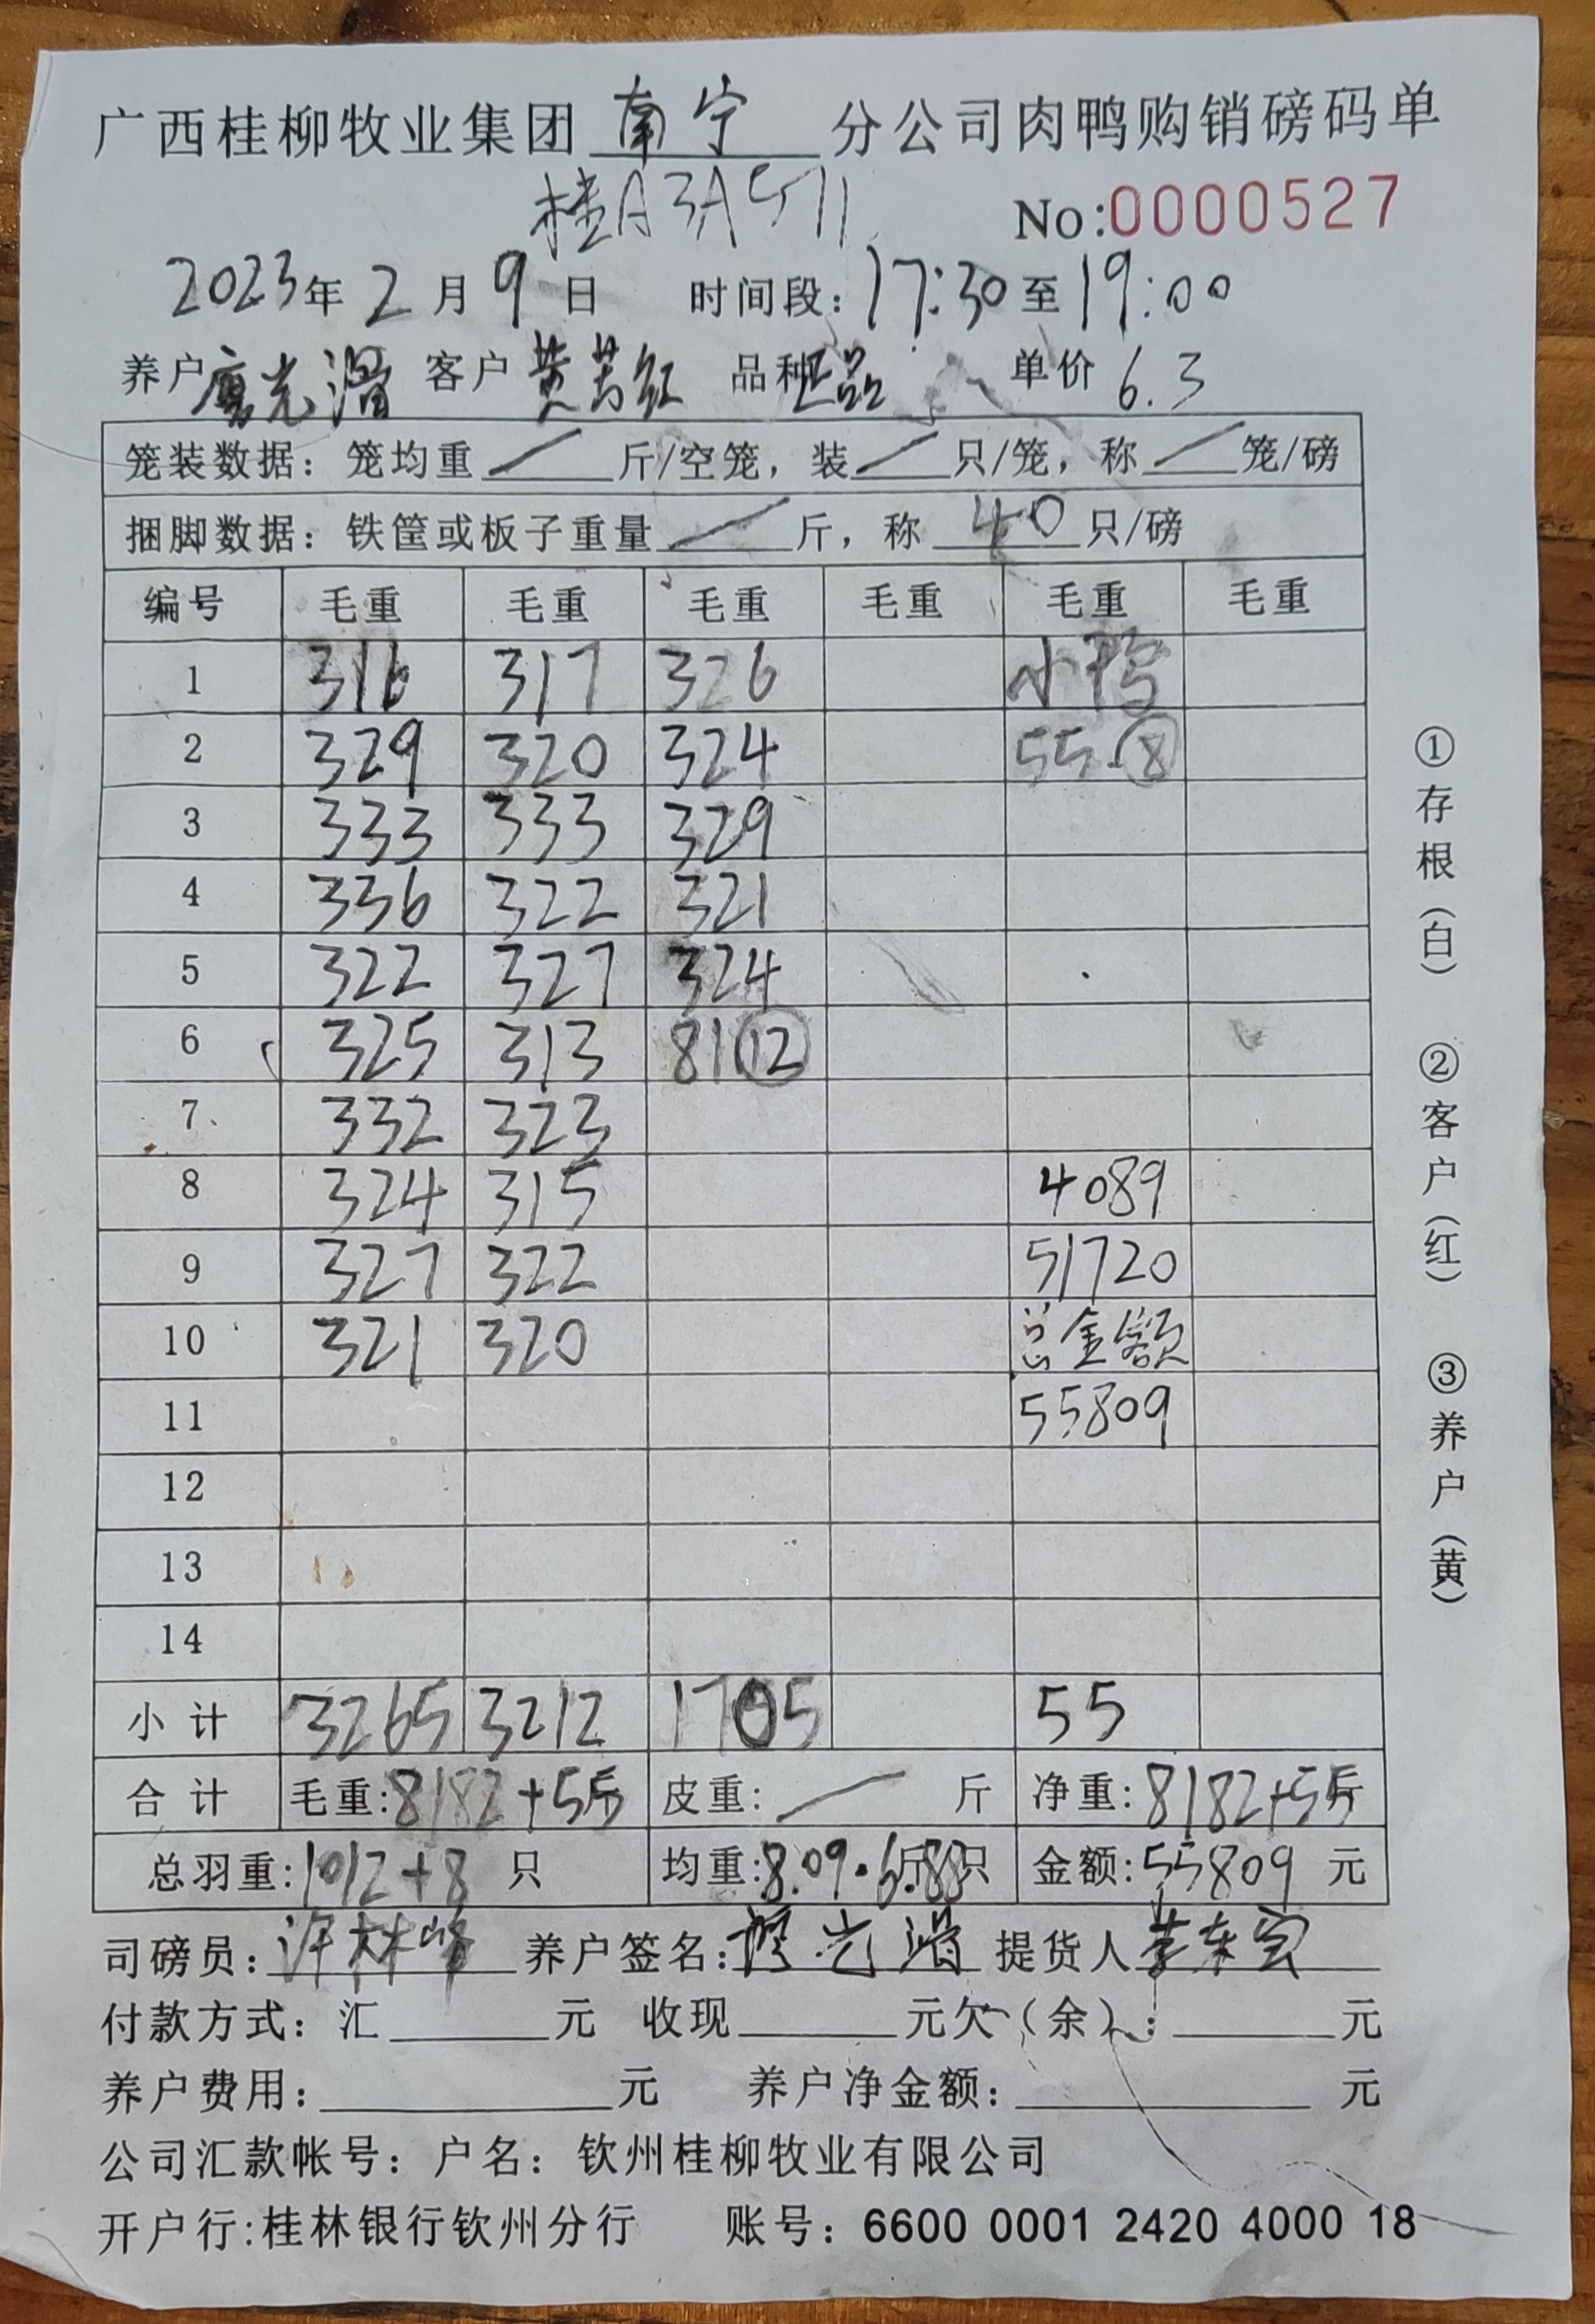 广西桂柳牧业集团南宁分公司肉鸭购销磅码单
桂A3A571 No:0000527
2023年2月9日 时间段:17:30至19:00
养户 廖光 客户 黄 红 品种 正品 单价 6.3
笼装数据:笼均重 / 斤/空笼,装 / 只/笼,称 / 笼/磅
捆脚数据:铁筐或板子重量 / 斤,称 40 只/磅
编号 毛重 毛重 毛重 毛重 毛重 毛重
1 316 317 326 小鸭
2 329 320 324 55.⑧
3 333 333 329
4 336 322 321
5 322 327 324
6 325 313 81⑫
7 332 323
8 324 315 4089
9 327 322 51720
10 321 320 总金额
11 55809
12
13
14
小计 3265 3212 1705 55
合计 毛重:8182+55斤 皮重: / 斤 净重:8182+55斤
总羽重:1012+8 只 均重:8.09.6.88斤/只 金额:55809 元
司磅员:许林峰 养户签名:廖光 提货人
付款方式:汇 元 收现 元欠(余): 元
养户费用: 元 养户净金额: 元
公司汇款帐号:户名:钦州桂柳牧业有限公司
开户行:桂林银行钦州分行 账号:6600 0001 2420 4000 18
①存根(白) ②客户(红) ③养户(黄)